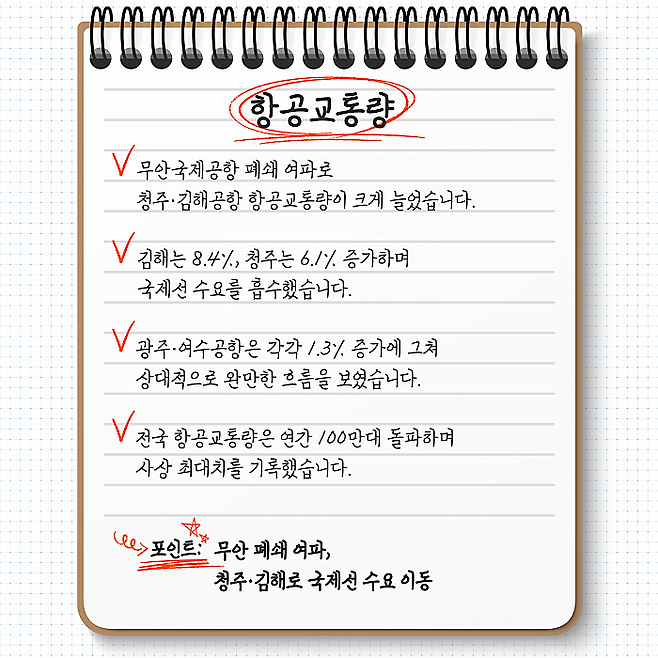 항공교통량
무안국제공항 폐쇄 여파로
청주·김해공항 항공교통량이 크게 늘었습니다.
김해는 8.4%, 청주는 6.1% 증가하며
국제선 수요를 흡수했습니다.
광주·여수공항은 각각 1.3% 증가에 그쳐
상대적으로 완만한 흐름을 보였습니다.
전국 항공교통량은 연간 100만대 돌파하며
사상 최대치를 기록했습니다.
포인트: 무안 폐쇄 여파,
청주·김해로 국제선 수요 이동